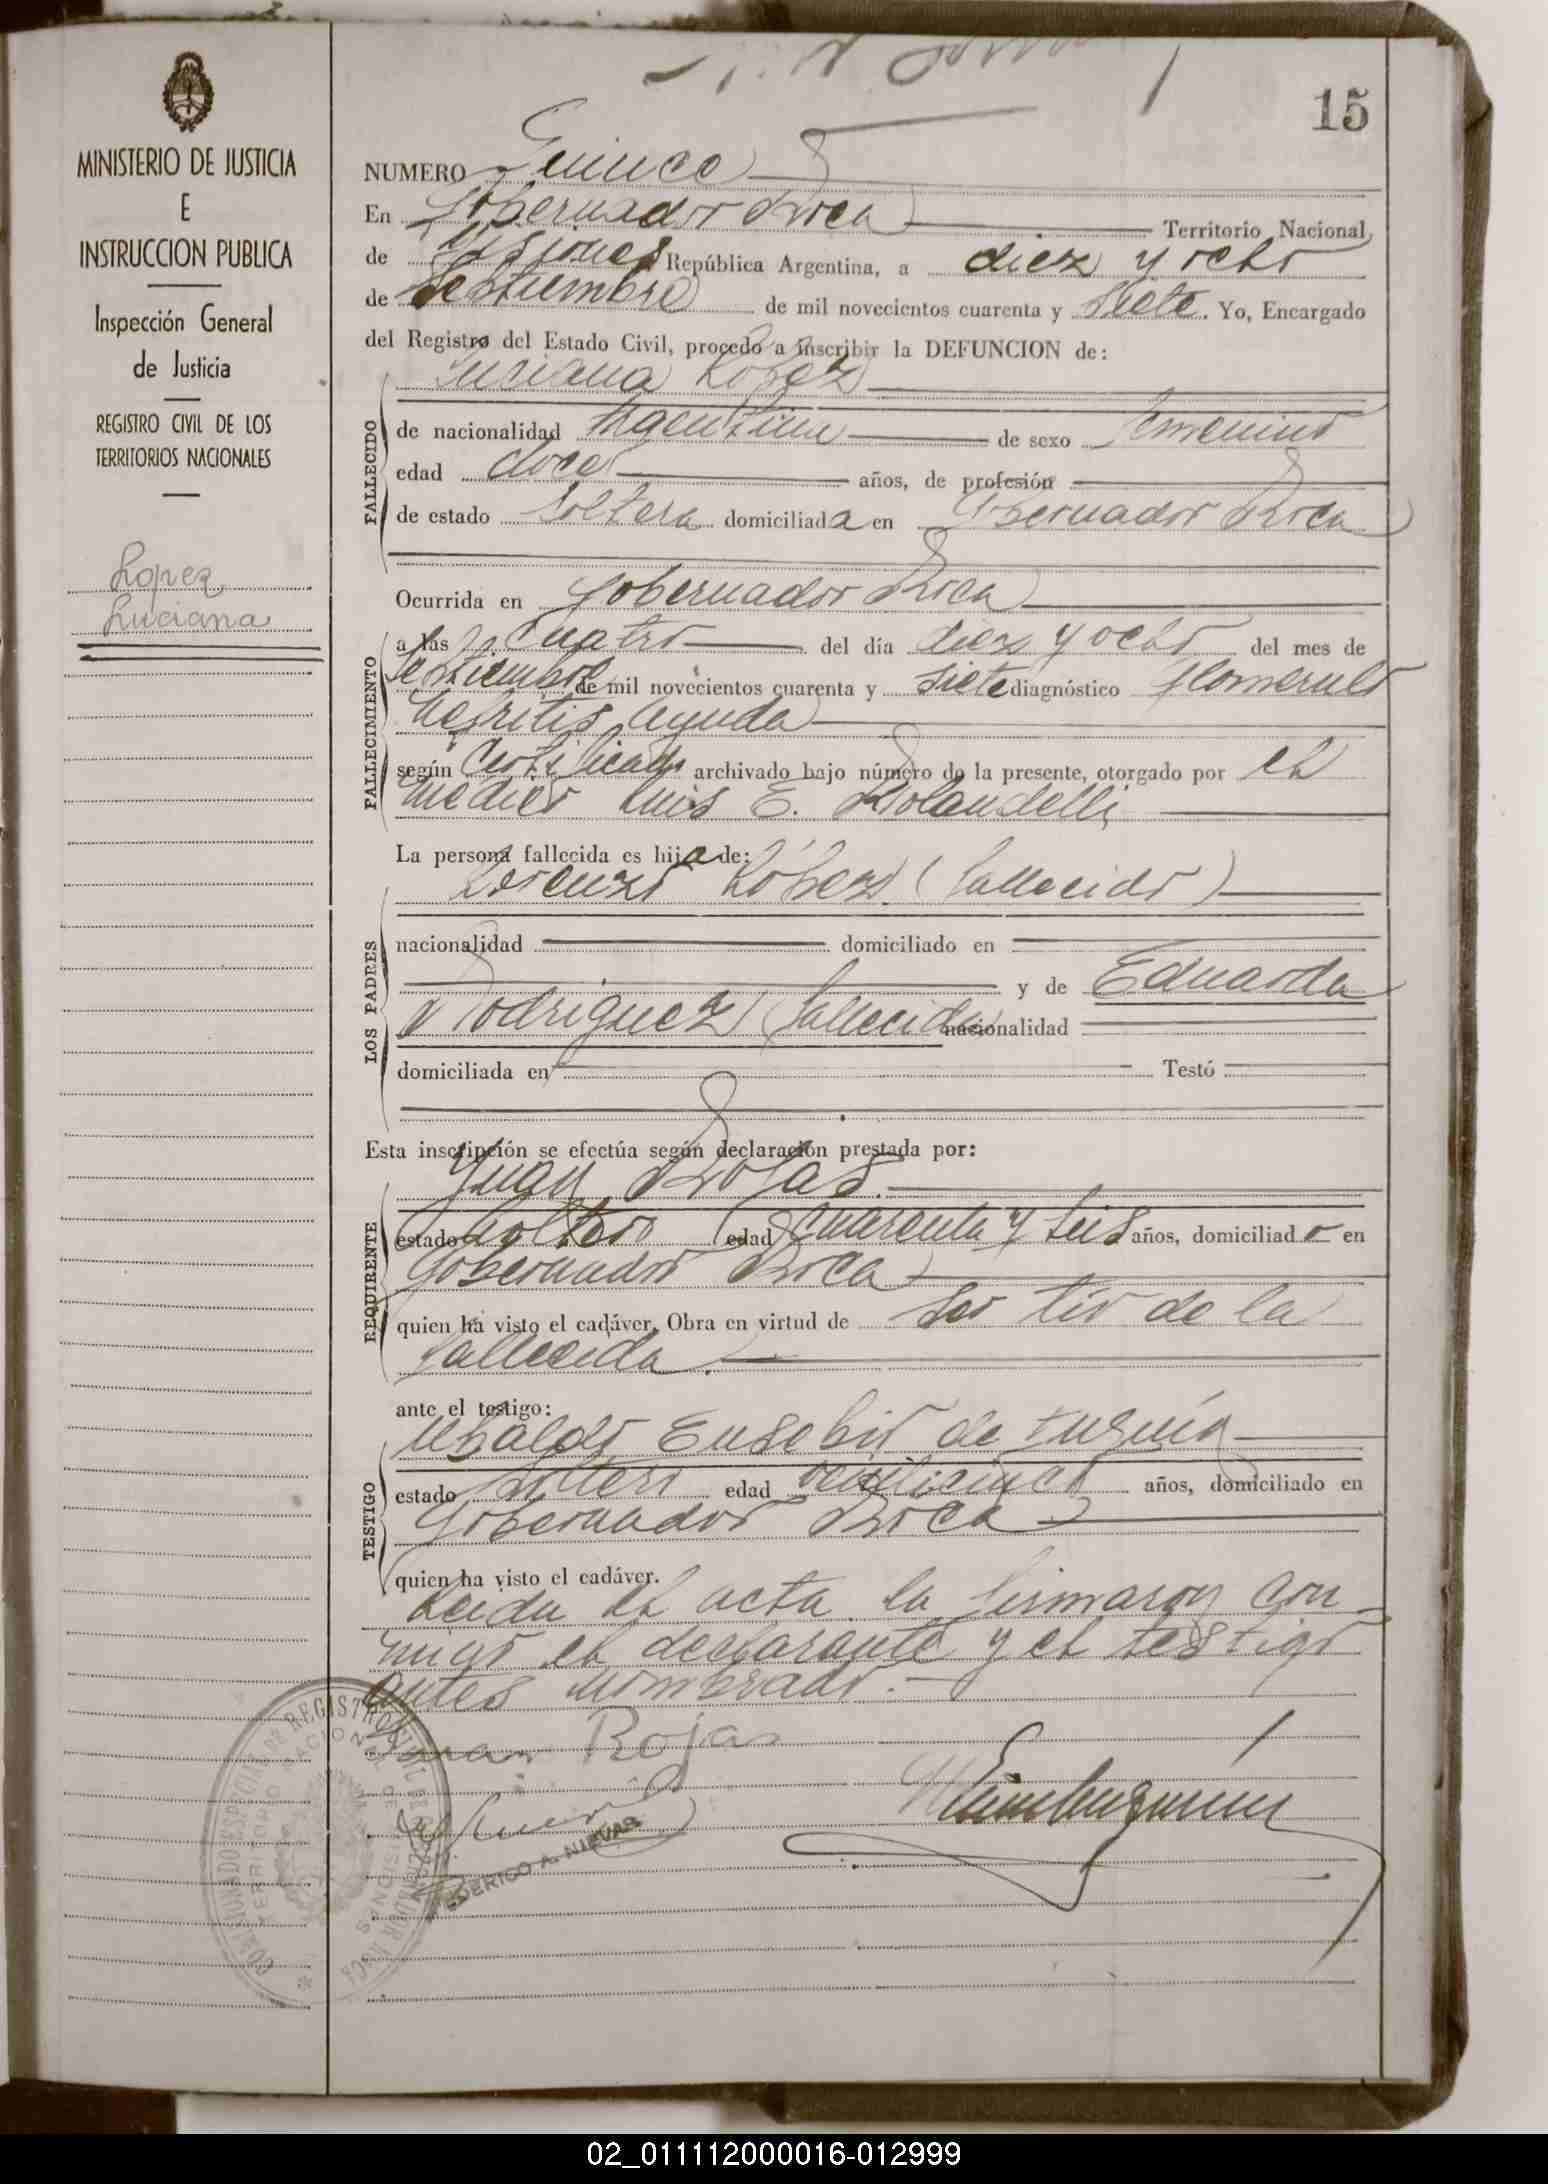 15
MINISTERIO DE JUSTICIA
E
INSTRUCCION PUBLICA
Inspección General
de Justicia
REGISTRO CIVIL DE LOS
TERRITORIOS NACIONALES
Lopez
Luciana
NUMERO Quince
En Gobernador Roca Territorio Nacional
de Misiones República Argentina, a diez y ocho
de Septiembre de mil novecientos cuarenta y siete. Yo, Encargado
del Registro del Estado Civil, procedo a inscribir la DEFUNCION de:
Luciana López
FALLECIDO
de nacionalidad Argentina de sexo femenino
edad doce años, de profesión
de estado soltera domiciliada en Gobernador Roca
Ocurrida en Gobernador Roca
FALLECIMIENTO
a las cuatro del día diez y ocho del mes de
Septiembre de mil novecientos cuarenta y siete diagnóstico Glomerulo
Nefritis Aguda
según Certificado archivado bajo número de la presente, otorgado por el
medico Luis E. Rolandelli
La persona fallecida es hija de:
LOS PADRES
Lorenzo López (fallecido)
nacionalidad domiciliado en
y de Eduarda
Rodriguez (fallecida) nacionalidad
domiciliada en Testó
Esta inscripción se efectúa según declaración prestada por:
REQUIRENTE
Juan Rojas
estado soltero edad cuarenta y seis años, domiciliado en
Gobernador Roca
quien ha visto el cadáver. Obra en virtud de ser tío de la
fallecida.
ante el testigo:
TESTIGO
Ubaldo Eusebio de
estado soltero edad veinticinco años, domiciliado en
Gobernador Roca
quien ha visto el cadáver.
Leida el acta la firmaron con
migo el declarante y el testigo
antes nombrado.
Juan Rojas
FEDERICO A. NIEVAS
02_011112000016-012999